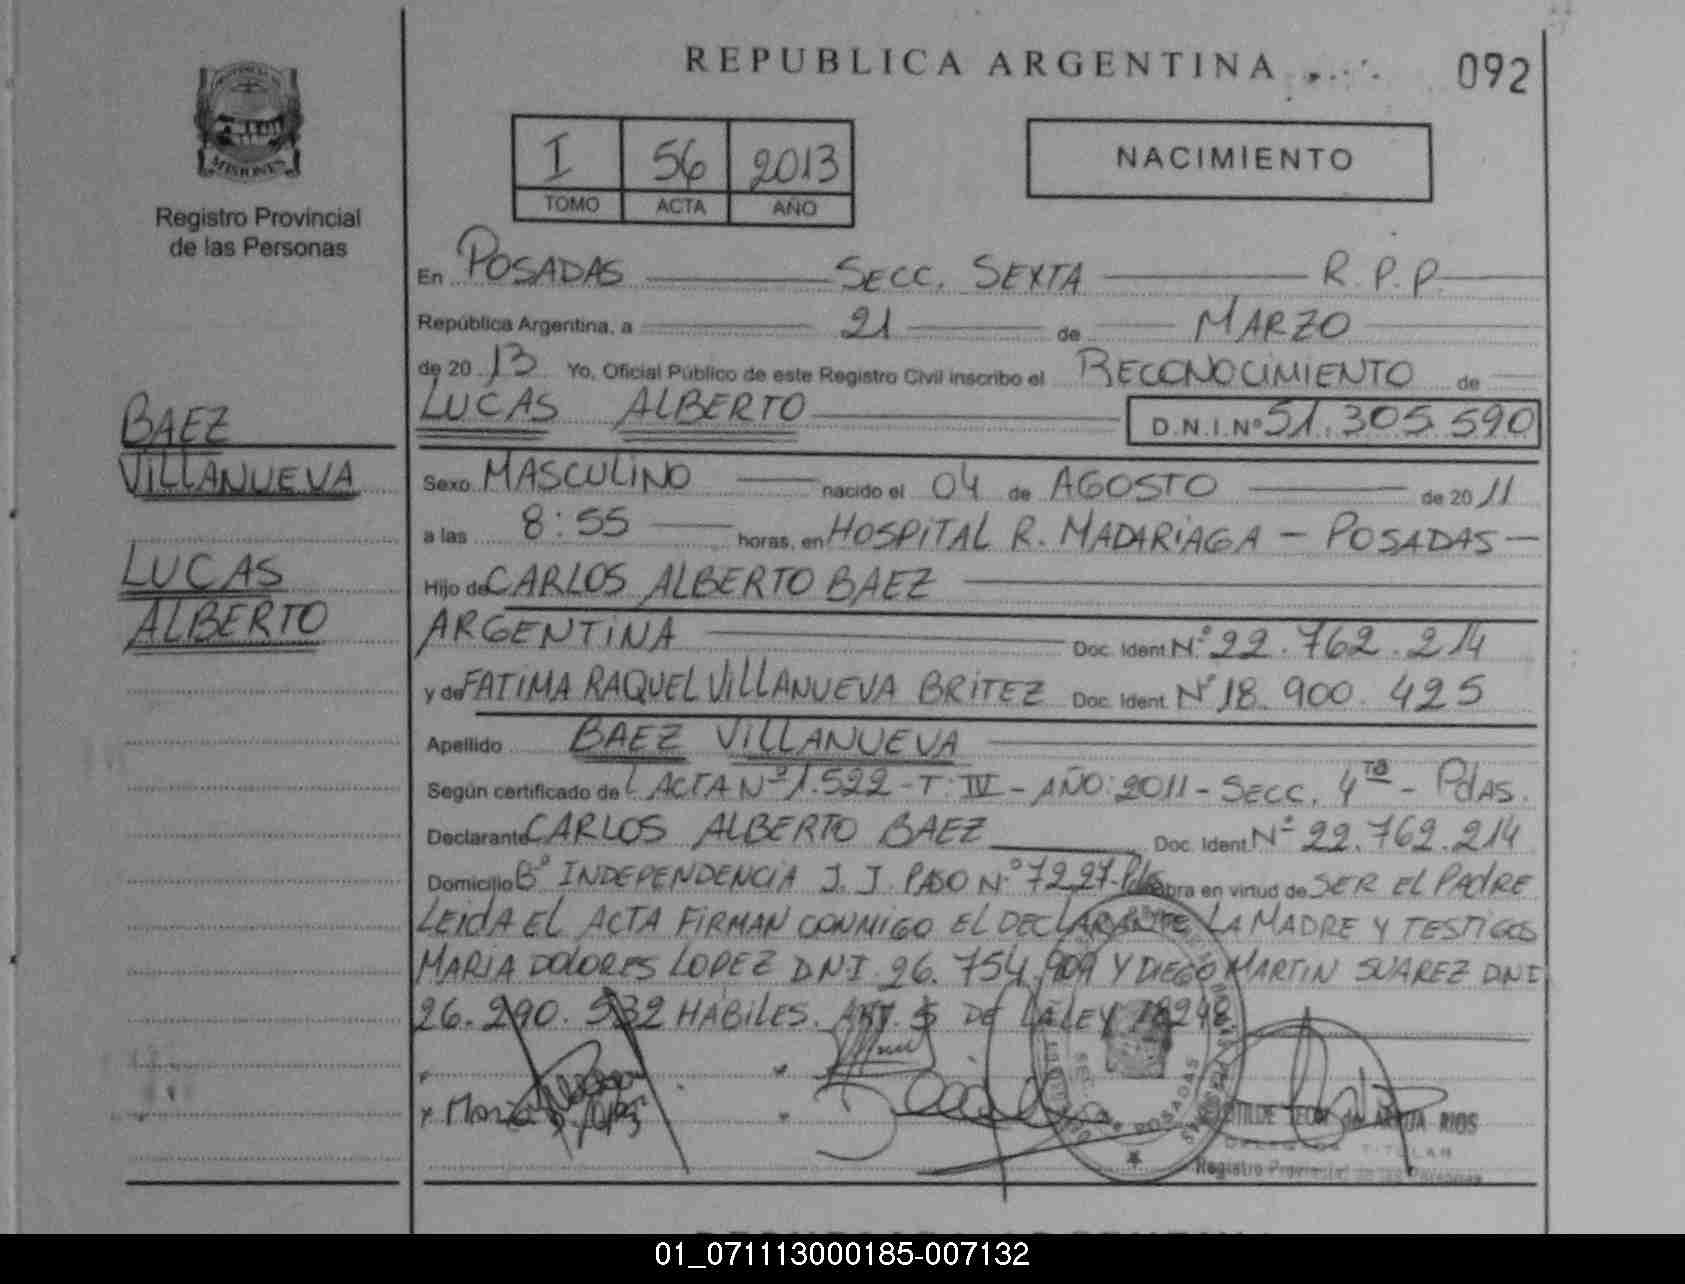 REPUBLICA ARGENTINA
092
MISIONES
Registro Provincial
de las Personas
I 56 2013
TOMO ACTA AÑO
NACIMIENTO
En POSADAS SECC. SEXTA R.P.P.
República Argentina, a 21 de MARZO
de 2013 Yo, Oficial Público de este Registro Civil inscribo el RECONOCIMIENTO de
LUCAS ALBERTO D.N.I. Nº 51.305.590
BAEZ
VILLANUEVA
LUCAS
ALBERTO
Sexo MASCULINO nacido el 04 de AGOSTO de 2011
a las 8:55 horas, en HOSPITAL R. MADARIAGA - POSADAS -
Hijo de CARLOS ALBERTO BAEZ
ARGENTINA Doc. Ident. Nº 22.762.214
y de FATIMA RAQUEL VILLANUEVA BRITEZ Doc. Ident. Nº 18.900.425
Apellido BAEZ VILLANUEVA
Según certificado de ACTA Nº 1.522 - T: IV - AÑO: 2011 - SECC. 4ta - Pdas.
Declarante CARLOS ALBERTO BAEZ Doc. Ident. Nº 22.762.214
Domicilio Bº INDEPENDENCIA J. J. PASO Nº 7227-Pdas obra en virtud de SER EL PADRE
LEIDA EL ACTA FIRMAN CONMIGO EL DECLARANTE LA MADRE Y TESTIGOS
MARIA DOLORES LOPEZ D.N.I. 26.754.909 Y DIEGO MARTIN SUAREZ DNI
26.290.532 HABILES. ART. 5 DE LA LEY 18248
POSADAS
de ARRUA RIOS
TITULAR
Registro Provincial de las Personas
01_071113000185-007132